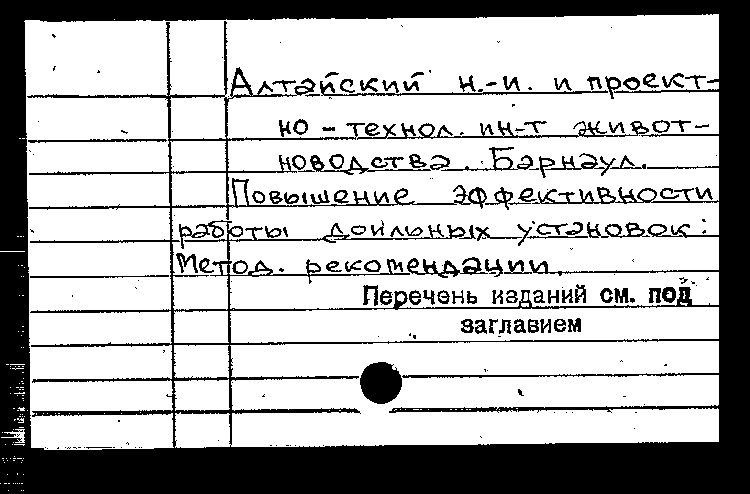 Алтайский н.-и. и проект-
но-технол. ин-т живот-
новодства. Барнаул.
Повышение эффективности
работы доильных установок:
Метод. рекомендации.
Перечень изданий см. под
заглавием